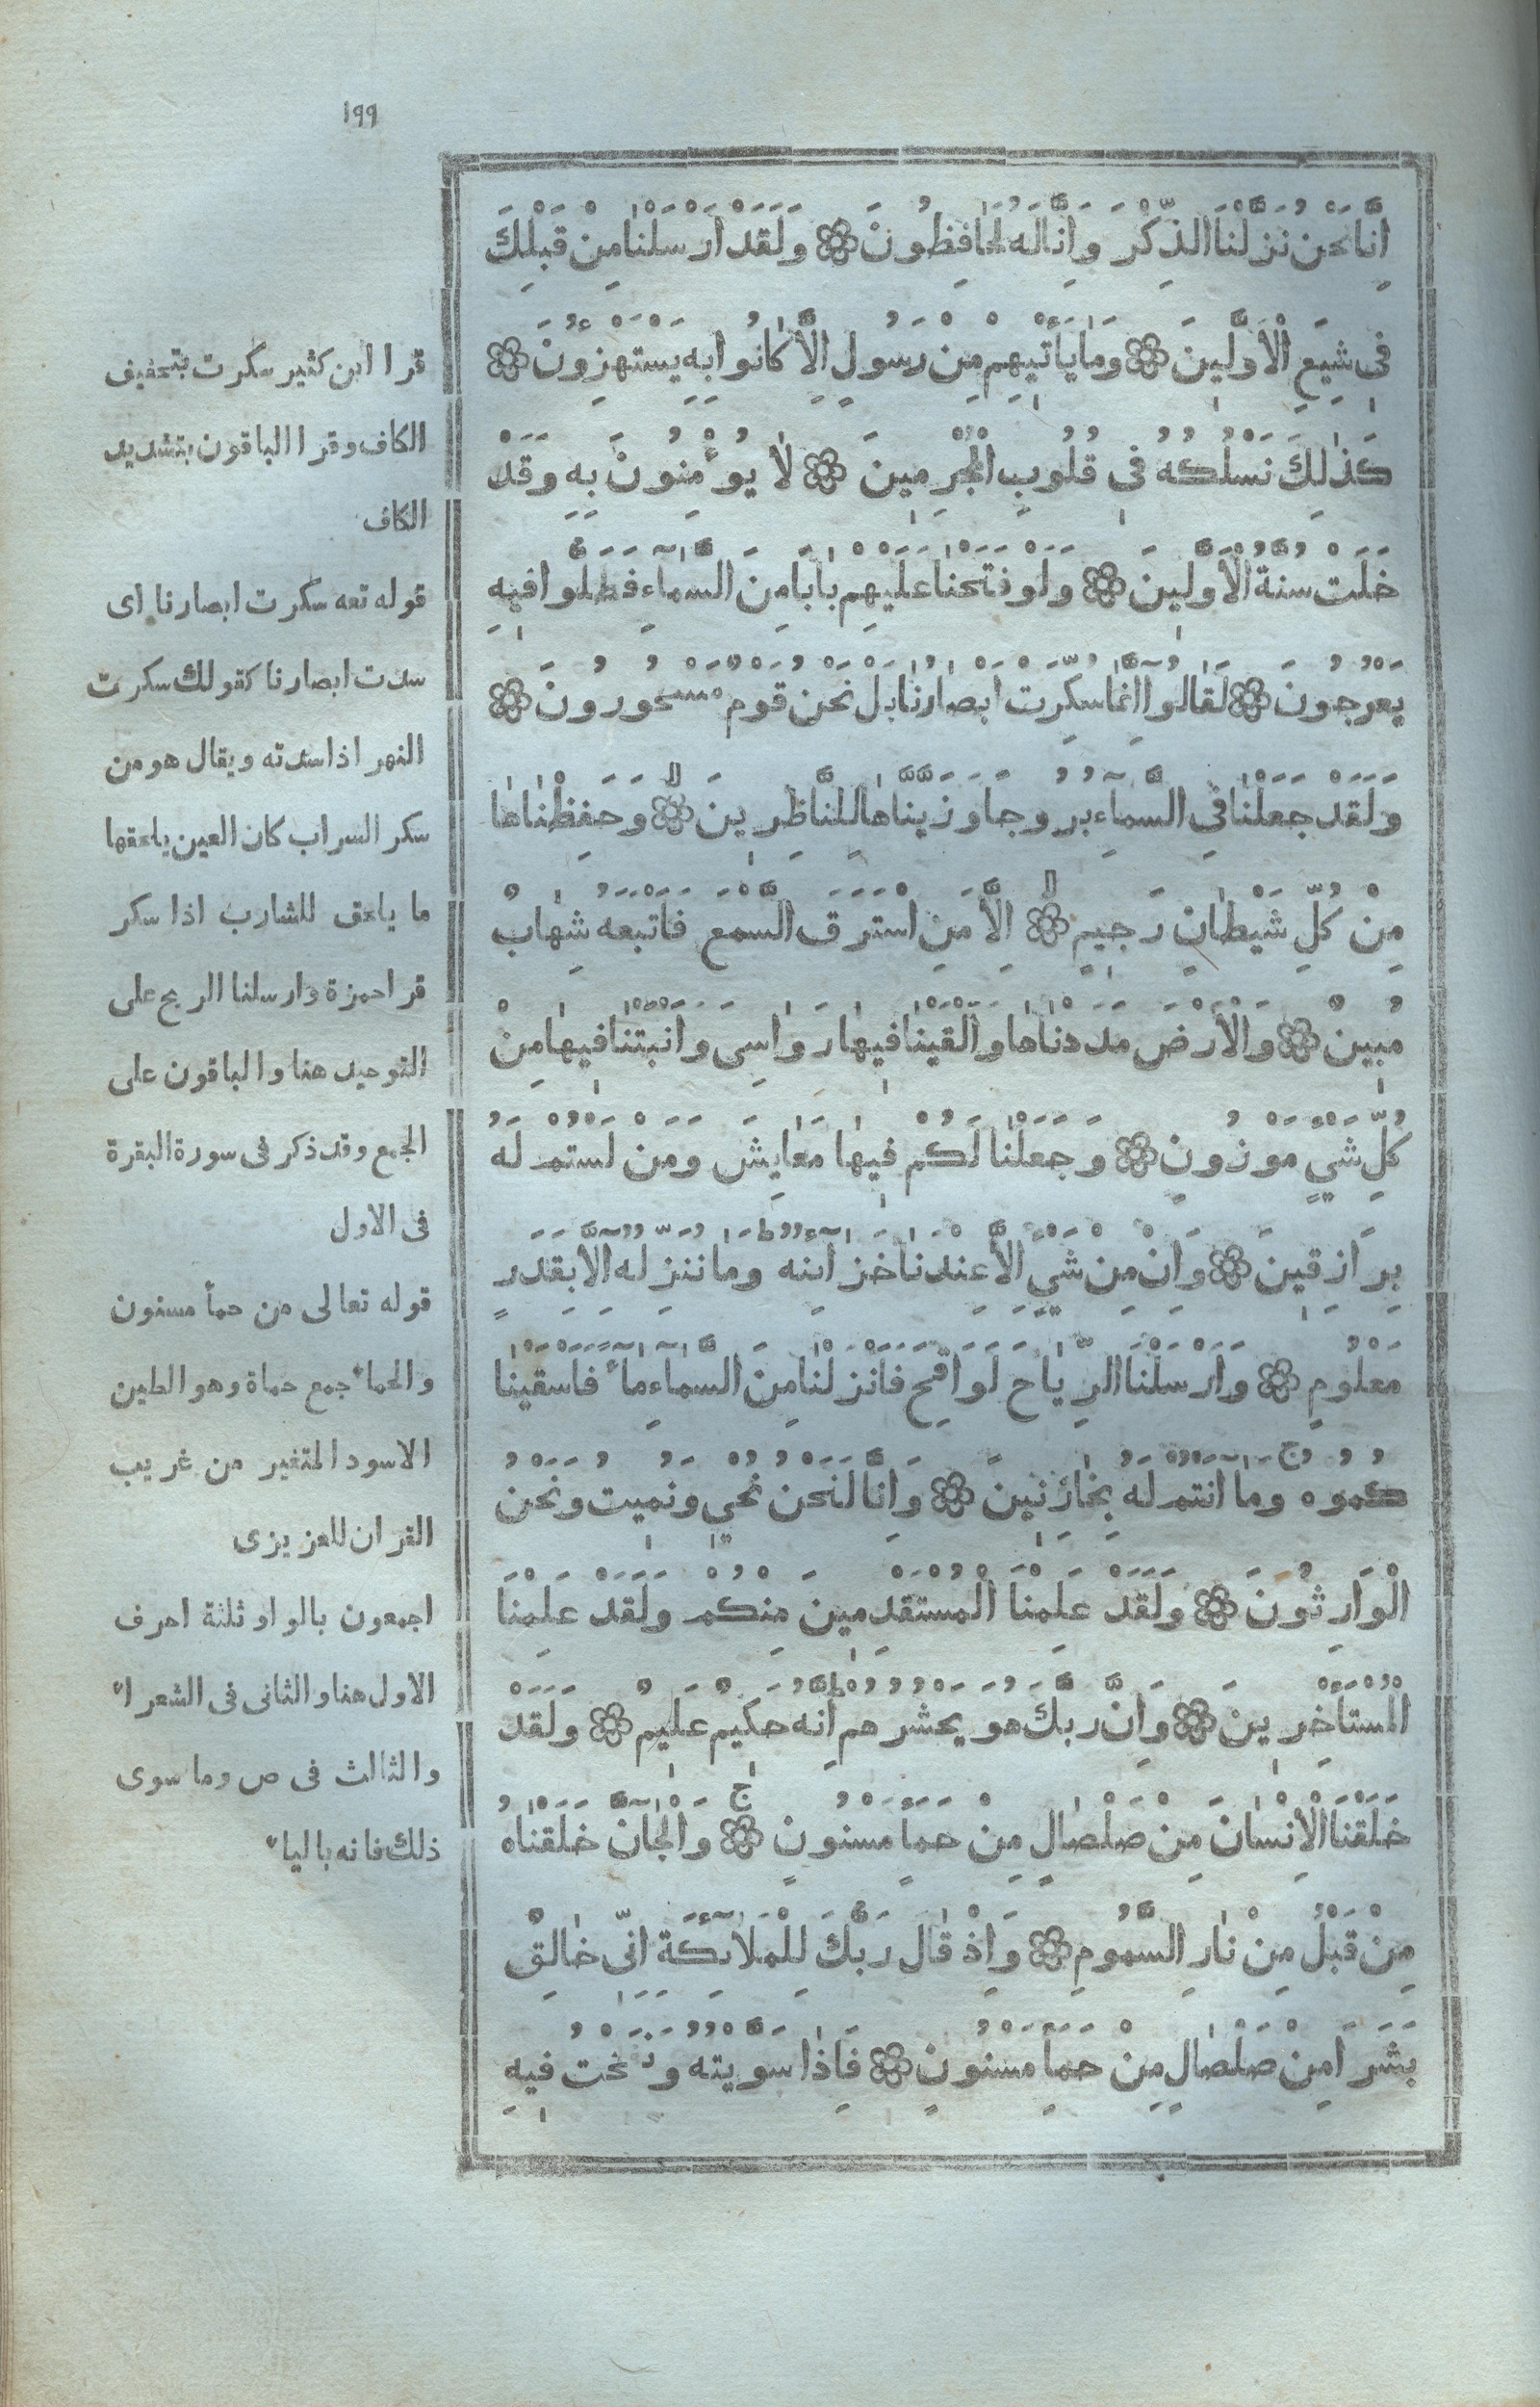 ١٩٩
اِنَّا نَحْنُ نَزَّلْنَا الذِّكْرَ وَاِنَّا لَهُ لَحَافِظُونَ ۞ وَلَقَدْ اَرْسَلْنَا مِنْ قَبْلِكَ
فِي شِيَعِ الْاَوَّلِينَ ۞ وَمَا يَأْتِيهِمْ مِنْ رَسُولٍ اِلَّا كَانُوا بِهِ يَسْتَهْزِؤُنَ ۞
كَذٰلِكَ نَسْلُكُهُ فِي قُلُوبِ الْمُجْرِمِينَ ۞ لَا يُؤْمِنُونَ بِهِ وَقَدْ
خَلَتْ سُنَّةُ الْاَوَّلِينَ ۞ وَلَوْ فَتَحْنَا عَلَيْهِمْ بَابًا مِنَ السَّمَاءِ فَظَلُّوا فِيهِ
يَعْرُجُونَ ۞ لَقَالُوا اِنَّمَا سُكِّرَتْ اَبْصَارُنَا بَلْ نَحْنُ قَوْمٌ مَسْحُورُونَ ۞
وَلَقَدْ جَعَلْنَا فِي السَّمَاءِ بُرُوجًا وَزَيَّنَّاهَا لِلنَّاظِرِينَ ۞ وَحَفِظْنَاهَا
مِنْ كُلِّ شَيْطَانٍ رَجِيمٍ ۞ اِلَّا مَنِ اسْتَرَقَ السَّمْعَ فَاَتْبَعَهُ شِهَابٌ
مُبِينٌ ۞ وَالْاَرْضَ مَدَدْنَاهَا وَاَلْقَيْنَا فِيهَا رَوَاسِيَ وَاَنْبَتْنَا فِيهَا مِنْ
كُلِّ شَيْءٍ مَوْزُونٍ ۞ وَجَعَلْنَا لَكُمْ فِيهَا مَعَايِشَ وَمَنْ لَسْتُمْ لَهُ
بِرَازِقِينَ ۞ وَاِنْ مِنْ شَيْءٍ اِلَّا عِنْدَنَا خَزَائِنُهُ وَمَا نُنَزِّلُهُ اِلَّا بِقَدَرٍ
مَعْلُومٍ ۞ وَاَرْسَلْنَا الرِّيَاحَ لَوَاقِحَ فَاَنْزَلْنَا مِنَ السَّمَاءِ مَاءً فَاَسْقَيْنَا
كُمُوهُ وَمَا اَنْتُمْ لَهُ بِخَازِنِينَ ۞ وَاِنَّا لَنَحْنُ نُحْيِي وَنُمِيتُ وَنَحْنُ
الْوَارِثُونَ ۞ وَلَقَدْ عَلِمْنَا الْمُسْتَقْدِمِينَ مِنْكُمْ وَلَقَدْ عَلِمْنَا
الْمُسْتَأْخِرِينَ ۞ وَاِنَّ رَبَّكَ هُوَ يَحْشُرُهُمْ اِنَّهُ حَكِيمٌ عَلِيمٌ ۞ وَلَقَدْ
خَلَقْنَا الْاِنْسَانَ مِنْ صَلْصَالٍ مِنْ حَمَأٍ مَسْنُونٍ ۞ وَالْجَانَّ خَلَقْنَاهُ
مِنْ قَبْلُ مِنْ نَارِ السَّمُومِ ۞ وَاِذْ قَالَ رَبُّكَ لِلْمَلَائِكَةِ اِنِّي خَالِقٌ
بَشَرًا مِنْ صَلْصَالٍ مِنْ حَمَأٍ مَسْنُونٍ ۞ فَاِذَا سَوَّيْتُهُ وَنَفَخْتُ فِيهِ
قرا ابن كثير سكرت بتخفيف
الكاف وقرا الباقون بتشديد
الكاف
قوله تعه سكرت ابصارنا اى
سدت ابصارنا كقولك سكرت
النهر اذا سدته ويقال هو من
سكر السراب كان العين يلحقها
ما يلحق للشارب اذا سكر
قرا حمزة وارسلنا الريح على
التوحيد هنا والباقون على
الجمع وقد ذكر فى سورة البقرة
فى الاول
قوله تعالى من حمأ مسنون
والحماء جمع حماة وهو الطين
الاسود المتغير من غريب
القران للعزيزى
اجمعون بالواو ثلثة احرف
الاول هنا والثانى فى الشعراء
والثالث فى ص وما سوى
ذلك فانه بالياء